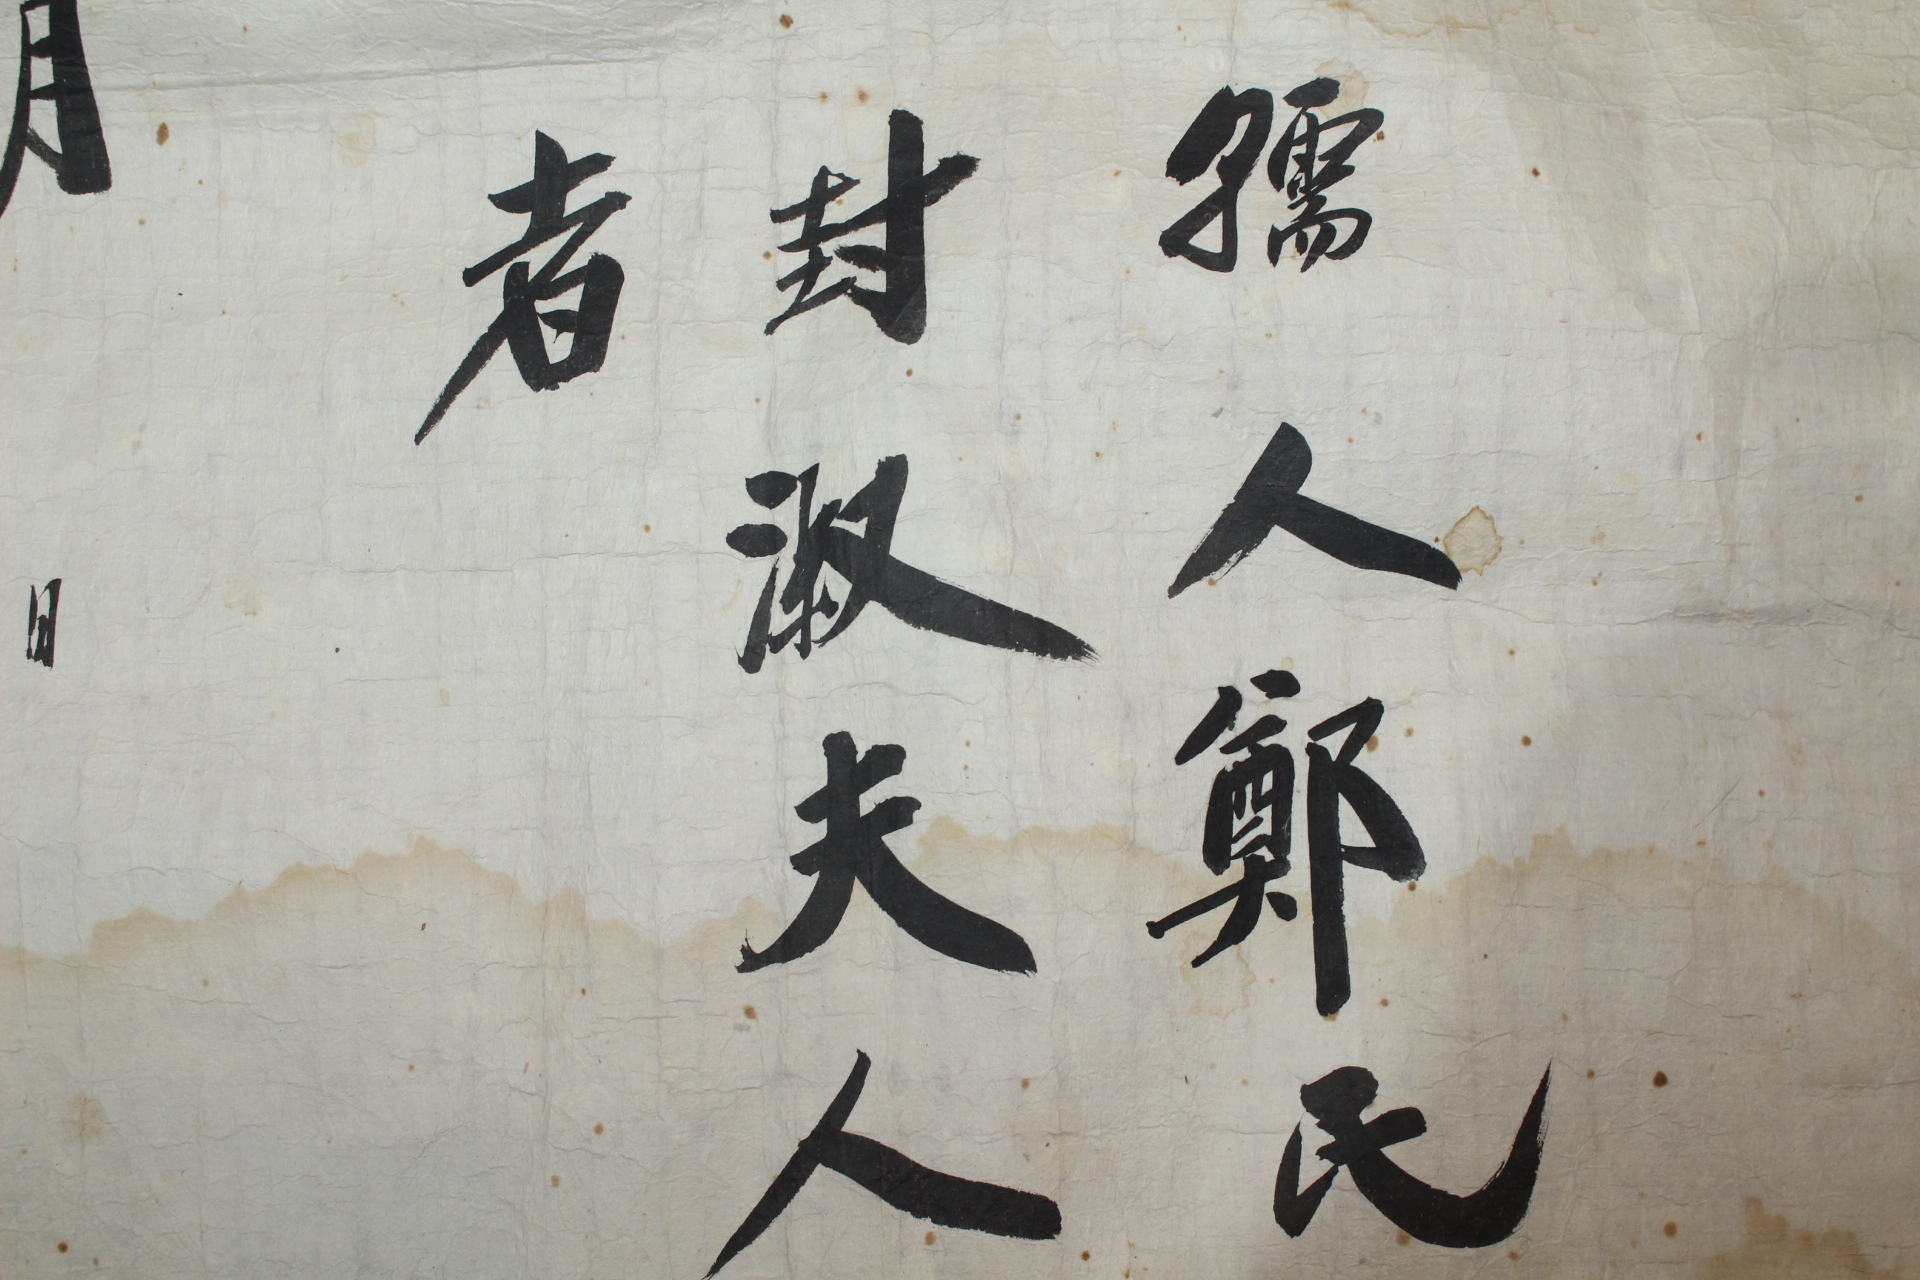 孺人鄭氏
封淑夫人
者
月 日